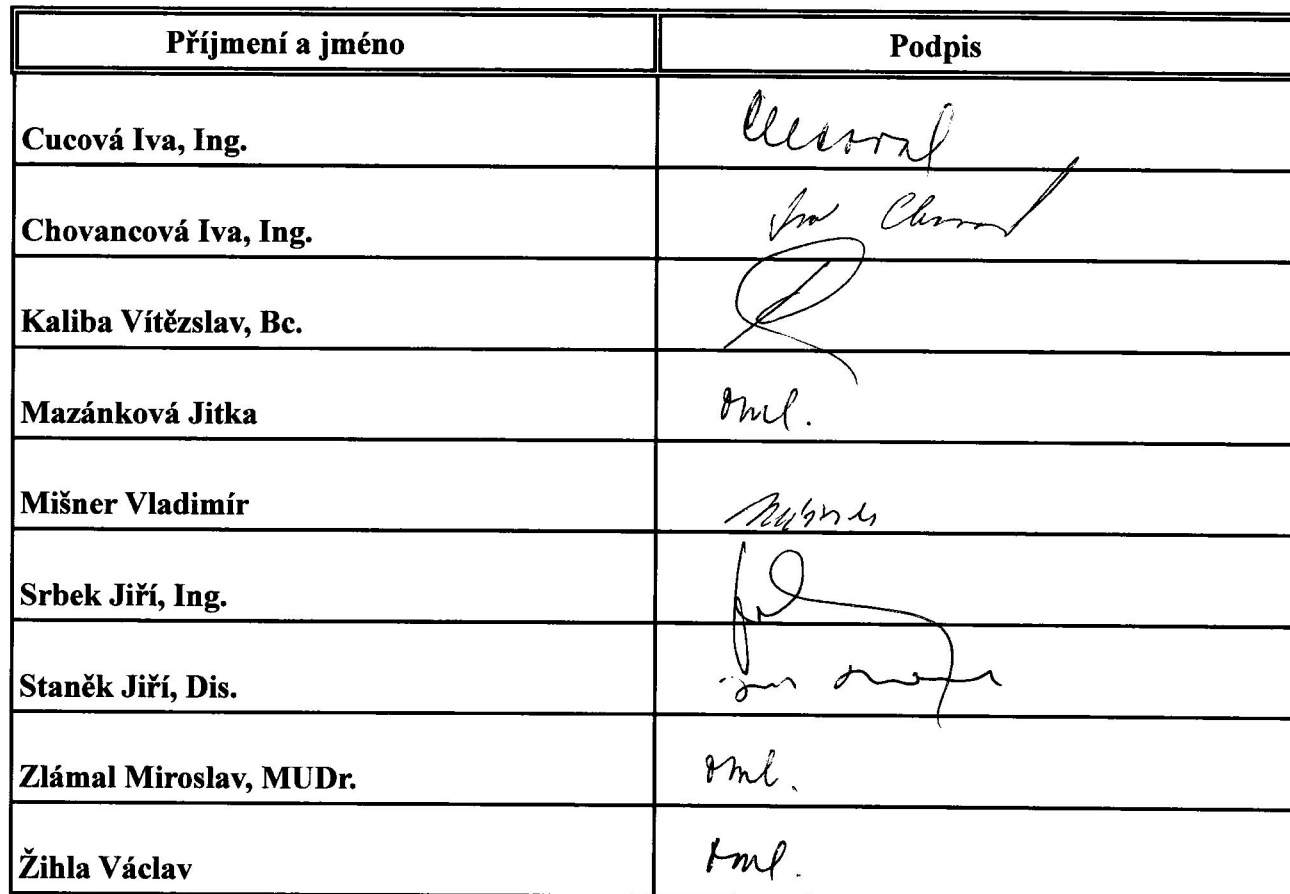 Příjmení a jméno Podpis
Cucová Iva, Ing.
Chovancová Iva, Ing.
Kaliba Vítězslav, Bc.
Mazánková Jitka oml.
Mišner Vladimír
Srbek Jiří, Ing.
Staněk Jiří, Dis.
Zlámal Miroslav, MUDr. oml.
Žihla Václav oml.